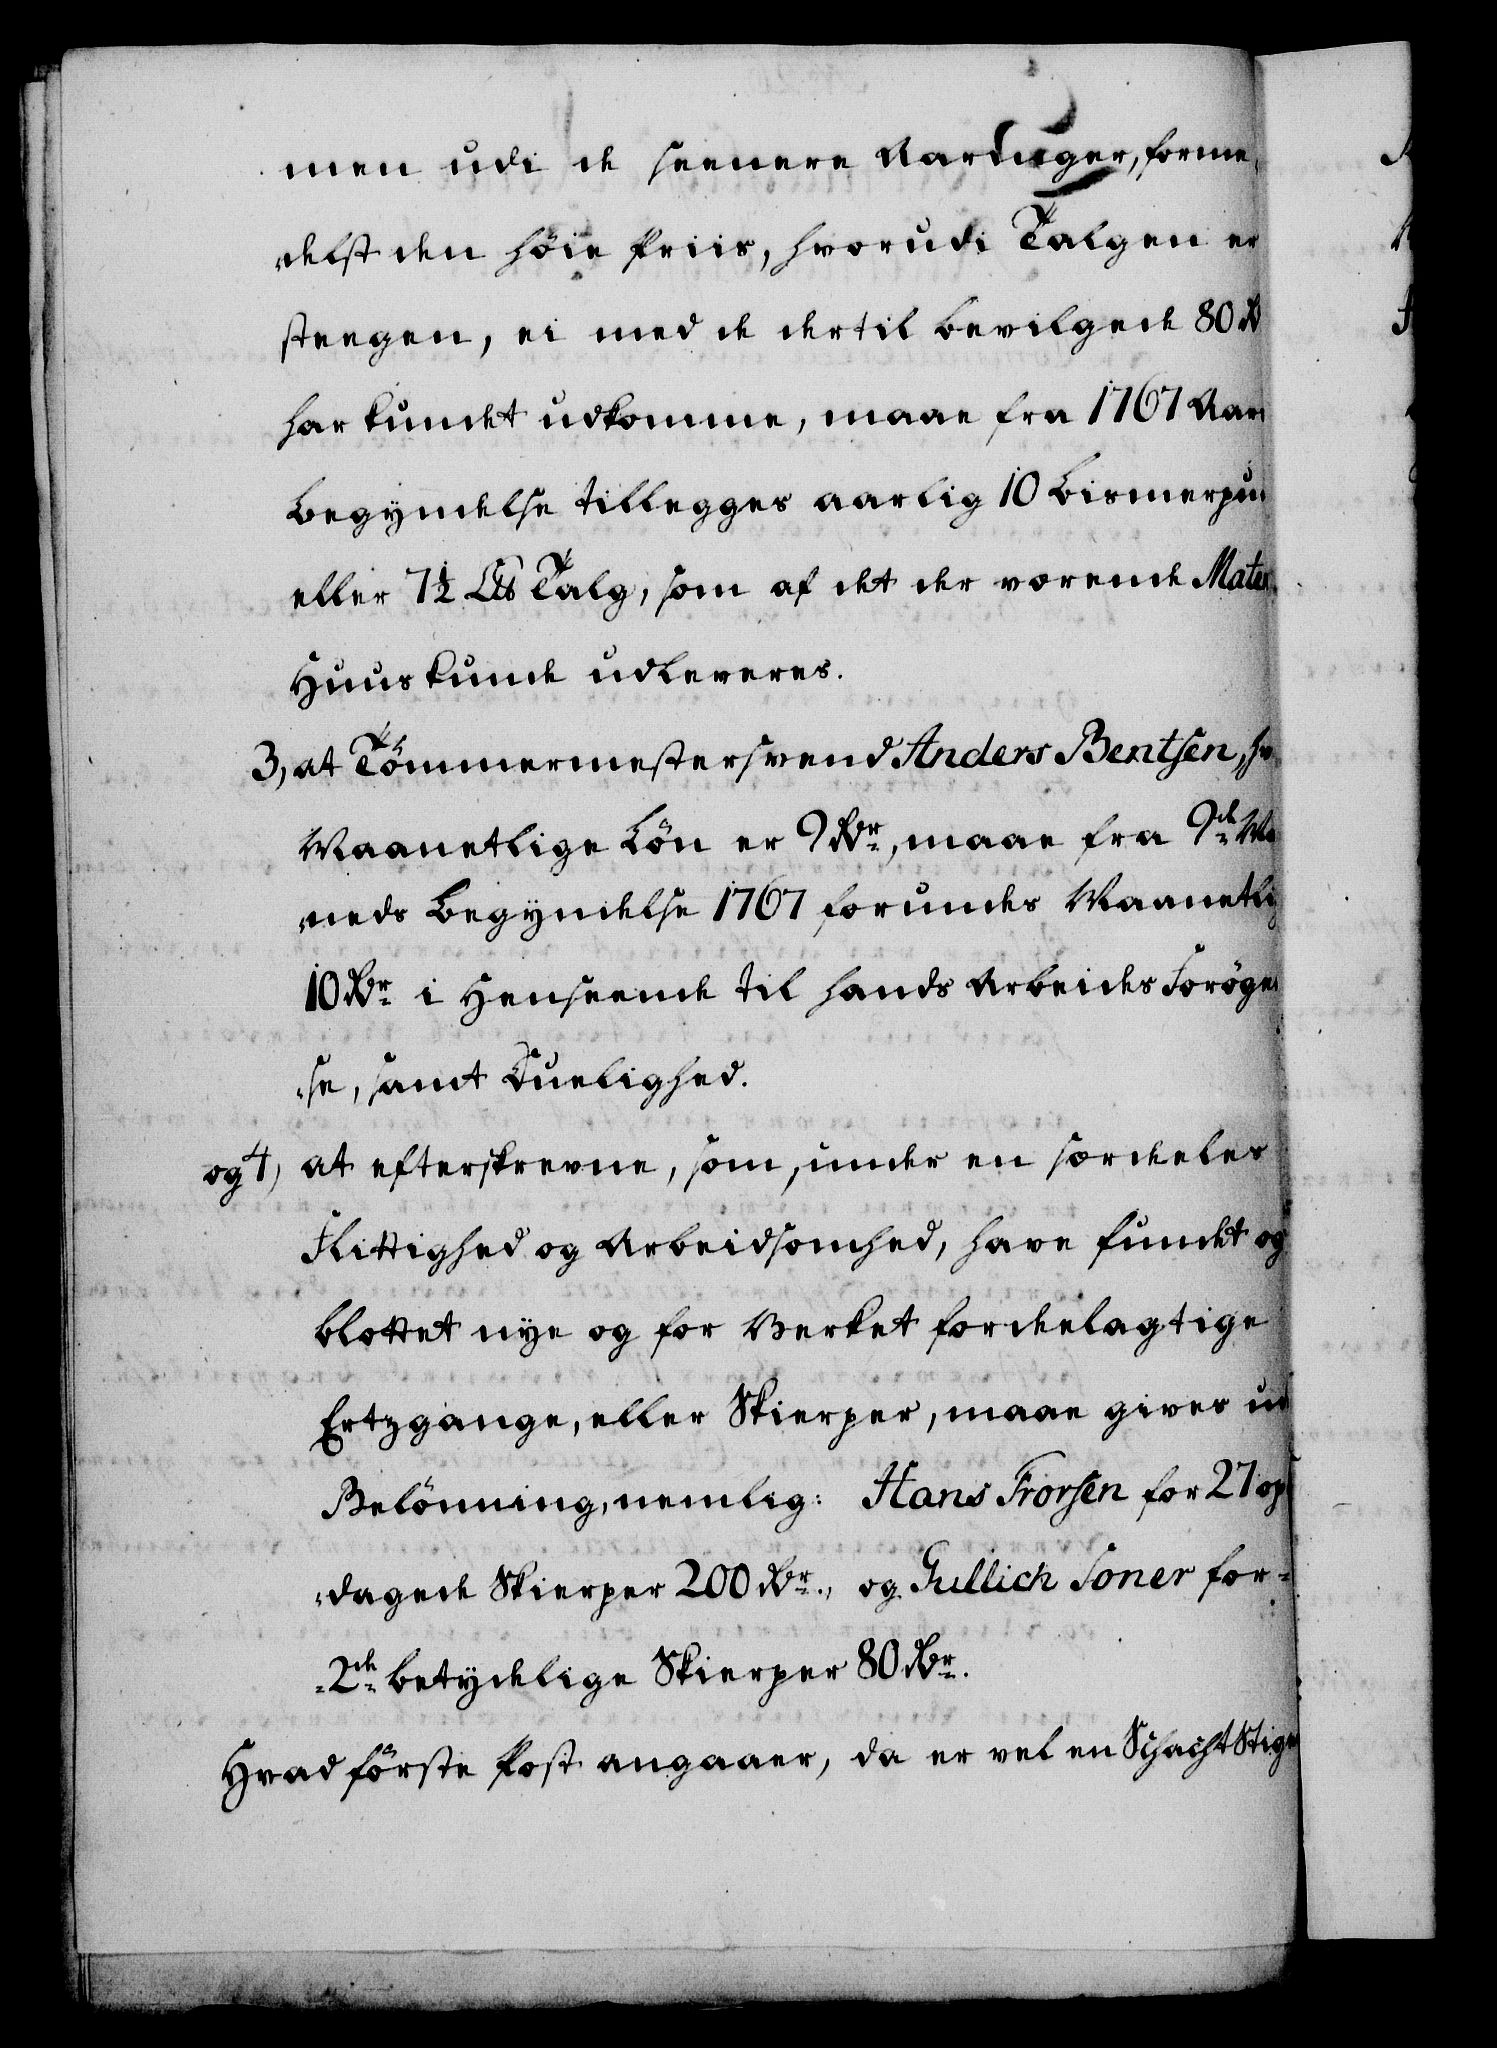 men udi de seenere Aaringer, forme-
delst den höie Priis, hvorudi Talgen er
steegen, ei med de dertil bevilgede 80 Rd
har kundet udkomme, maae fra 1767 Aars
Begyndelse tillegges aarlig 10 Bismerpun
eller 7½ L℔ Talg, som af det der værende Mater.
Huus kunde udleveres.
3, at Tömmermestersvend Anders Bentsen, hv
Maanetlige Lön er 9 Rdr, maae fra 9de Ma
neds Begyndelse 1767 forundes Maanetlig
10 Rdr i Henseende til hands Arbeides Forögel
se, samt Duelighed.
og 4, at efterskrevne, som, under en særdeles
Flittighed og Arbeidsomhed, have fundet og
blottet nye og for Verket fordelagtige
Ertzgange, eller Skierper, maae gives ud
Belönning, nemlig: Hans Frorsen for 27 op
dagede Skierper 200 Rdr., og Gullich Soner for-
2de betydelige Skierper 80 Rdr.
Hvad förste Post angaaer, da er vel en SchachtStiger